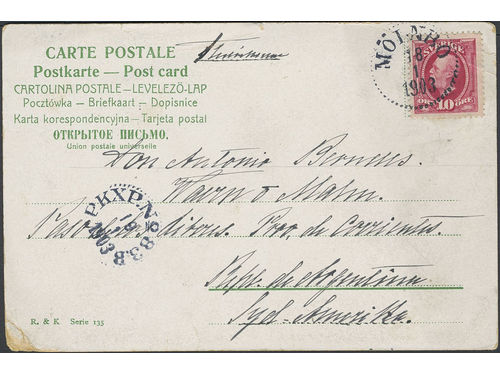 CARTE POSTALE
Postkarte — Post card
CARTOLINA POSTALE — LEVELEZŐ-LAP
Pocztówka — Briefkaart — Dopisnice
Karta korespondencyjna — Tarjeta postal
ОТКРЫТОЕ ПИСЬМО.
Union postale universelle
MÖLNBO
18
1
1903
SVERIGE
10 ÖRE
Don Antonio
Prov. de Corrientes
PKXP. No 83.B
1903
Rep. de Argentina
Syd-Amerika
R. & K. Serie 135